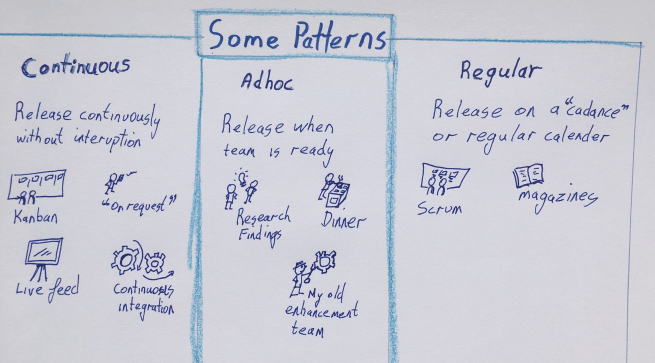 Some Patterns
Continuous
Release continuously
without interuption
Kanban
"On request"
Live feed
Continuous
integration
Adhoc
Release when
team is ready
Research
Findings
Dinner
My old
enhancement
team
Regular
Release on a "cadance"
or regular calender
Scrum
magazines